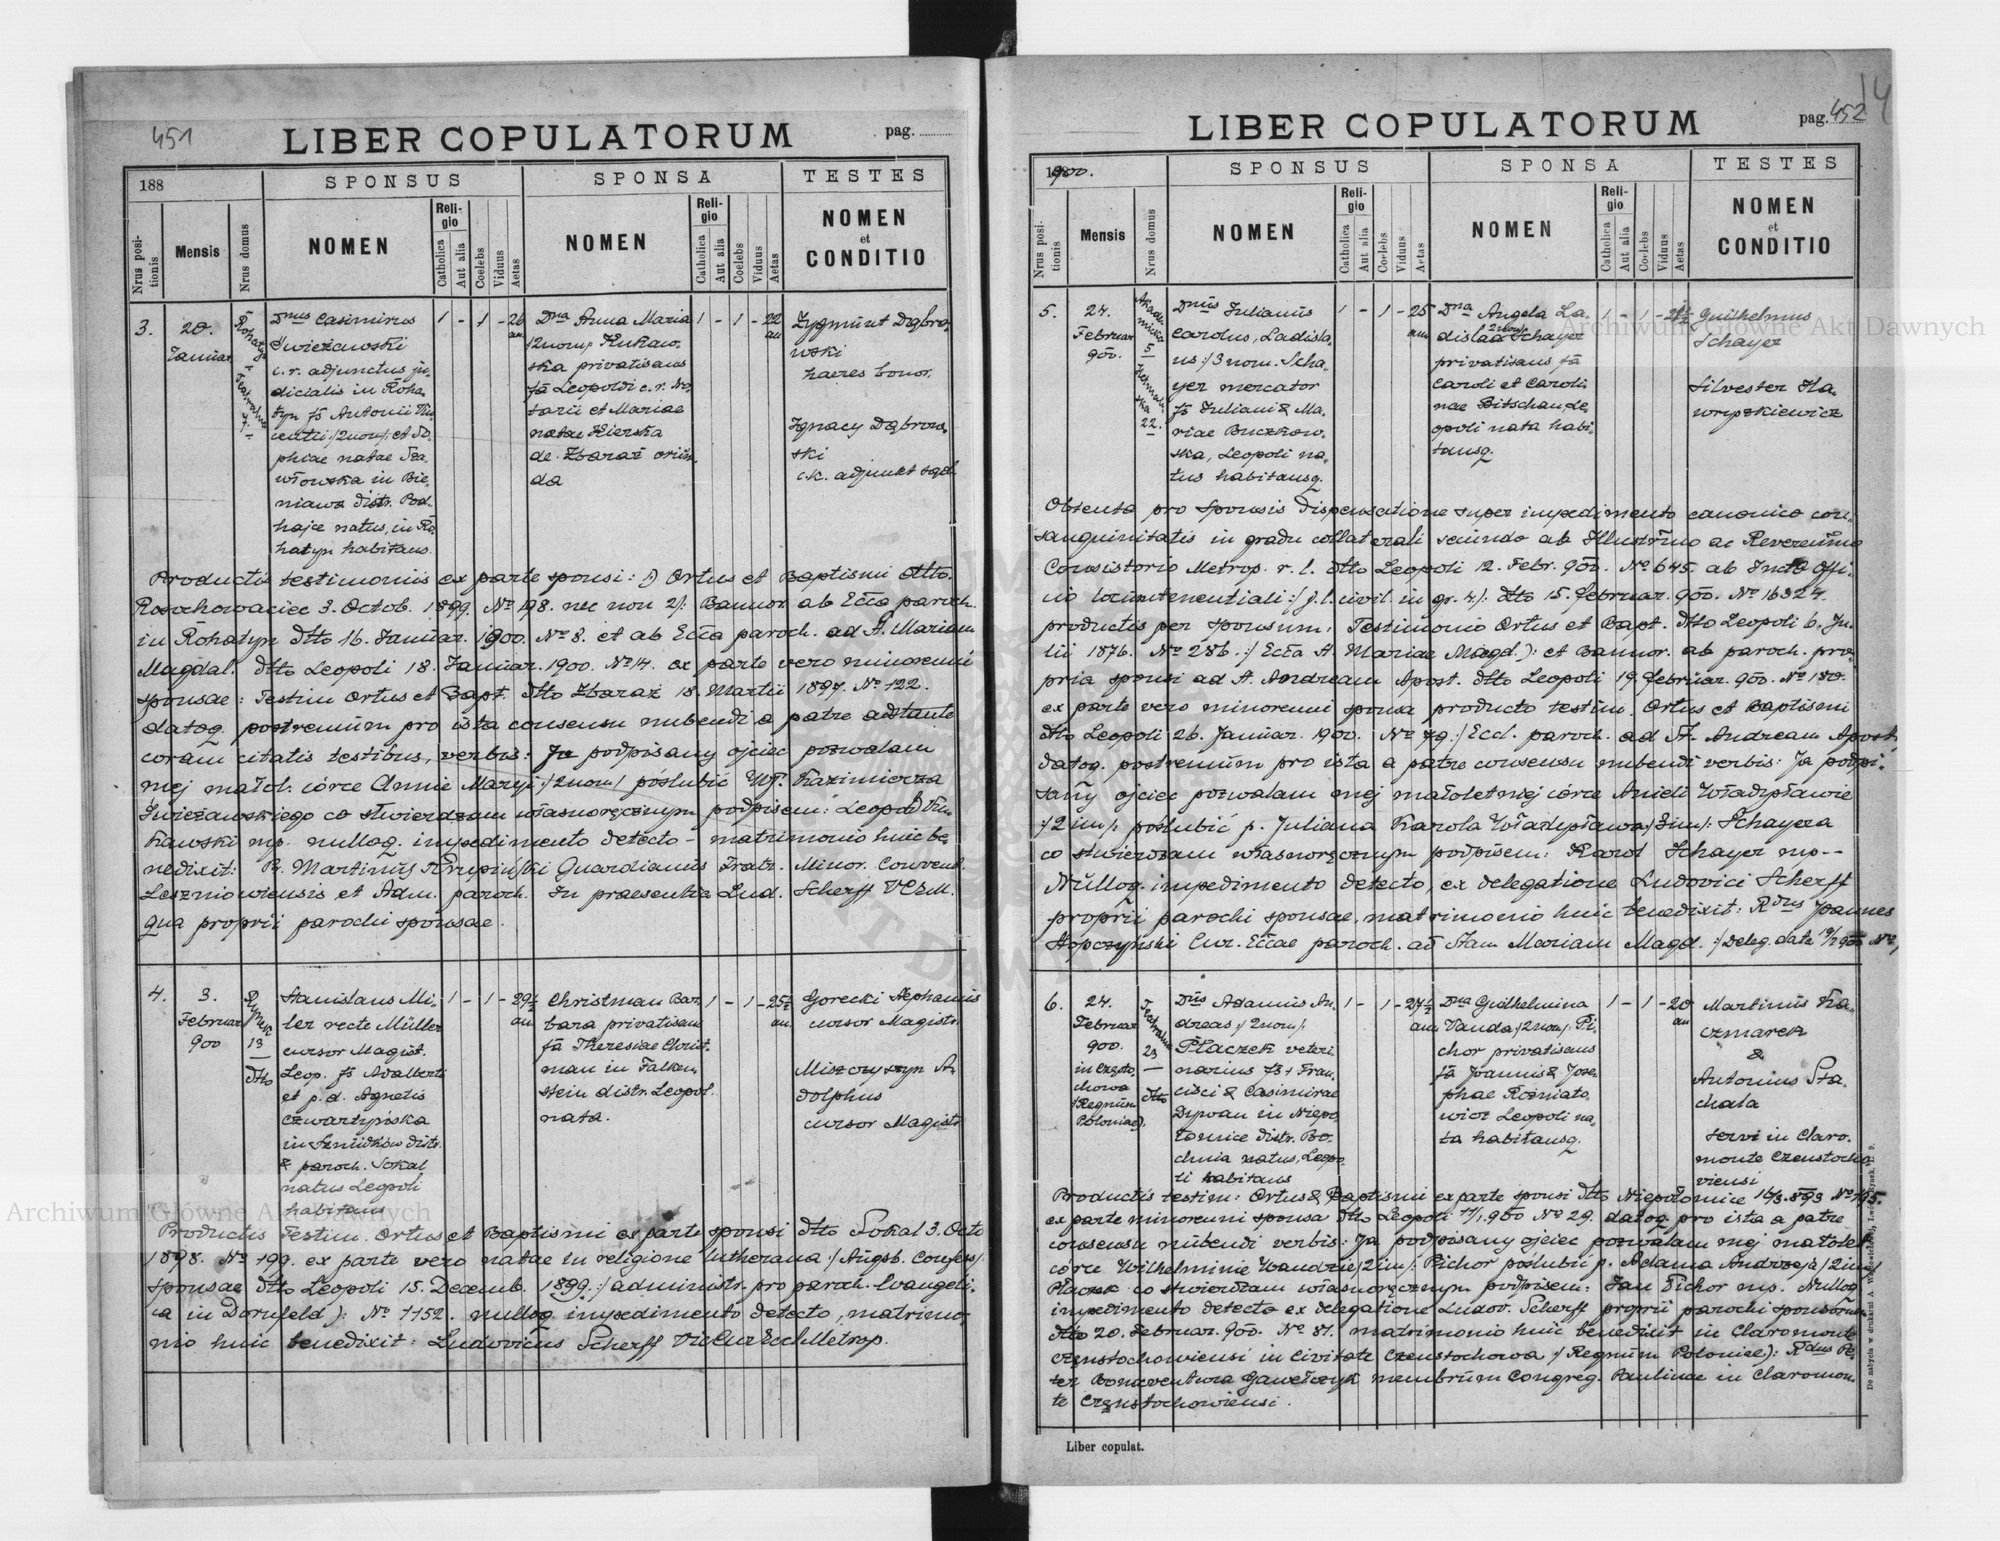 451
LIBER COPULATORUM
pag.
188
SPONSUS
SPONSA
TESTES
Nrus positionis
Mensis
Nrus domus
NOMEN
Religio
Catholica
Aut alia
Coelebs
Viduus
Aetas
NOMEN
Religio
Catholica
Aut alia
Coelebs
Viduus
Aetas
NOMEN
et
CONDITIO
3.
20.
Januar.
Dnus Casimirus
Świeżawski
c. r. adjunctus ju-
dicialis in Roha-
tyn fs Antonii
:/2nom/: et So-
phiae natae
in Bie-
niawa distr. Pod-
hajce natus, in Ro-
hatyn habitans.
1 - 1 - 26
an
Dna Anna Maria
/2nom/
privatisans
fa Leopoldi c. r. No-
tarii et Mariae
natae
de Zbaraż oriun-
da
1 - 1 - 22
an
Zygmunt Dąbro-
wski
haeres bonor.
Ignacy Dąbrow-
ski
c.k. adjunkt sąd.
Productis testimoniis ex parte sponsi: 1) Ortus et Baptismi dtto.
Rosochowaciec 3. Octob. 1899. No 198. nec non 2/: Bannor. ab Ecca paroch.
in Rohatyn dtto 16. Januar. 1900. No 8. et ab Ecca paroch. ad S. Mariam
Magdal. dtto Leopoli 18. Januar. 1900. No 14. ex parte vero minorenni
sponsae: Testim Ortus et Bapt. dtto Zbaraż 18. Martii 1897. No 122.
datoq. postremum pro ista consensu nubendi a patre adstante
coram citatis testibus, verbis: Ja podpisany ojciec pozwalam
mej małol. córce Annie Maryi :/2nom/ poślubić Wgo. Kazimierza
Świeżawskiego co stwierdzam własnoręcznym podpisem: Leopold
mp. nulloq. impedimento detecto - matrimonio huic be-
nedixit: Pr. Martinus Guardianus Fratr. Minor. Convent.
Leszniowiensis et Adm. paroch. In praesentia Lud. Scherff
qua proprii parochi sponsae.
4.
3.
Februar
900
Rynek
13
dtto
Stanislaus Mi-
ler recte Müller
cursor Magist.
Leop. fs Adalberti
et p. d. Agnetis
Czwartyńska
in distr.
& paroch. Sokal
natus Leopoli
habitans
1 - 1 - 29½
an.
Christman Bar-
bara privatisans
fa Theresiae Christ-
man in Falken-
stein distr. Leopol.
nata.
1 - 1 - 25½
an.
Gorecki Stephanus
cursor Magistr.
A-
dolphus
cursor Magistr.
Productis Testim. Ortus et Baptismi ex parte sponsi dtto Sokal 3. Octo
1898. No 199. ex parte vero natae in religione lutherana :/ Augsb. Confess/:
sponsae dtto Leopoli 15. Decemb. 1899. :/ administr. pro paroch. Evangeli-
ca in Dornfeld ): No 1152. nulloq. impedimento detecto, matrimo-
nio huic benedixit: Ludovicus Scherff Metrop.
LIBER COPULATORUM
pag. 452
14
1900.
SPONSUS
SPONSA
TESTES
Nrus positionis
Mensis
Nrus domus
NOMEN
Religio
Catholica
Aut alia
Coelebs
Viduus
Aetas
NOMEN
Religio
Catholica
Aut alia
Coelebs
Viduus
Aetas
NOMEN
et
CONDITIO
5.
24.
Februar
900.
5
22.
Dnus Julianus
Carolus, Ladisla-
us :/3 nom. Scha-
yer mercator
fs Juliani & Ma-
riae Buczkow-
ska, Leopoli na-
tus habitansq.
1 - 1 - 25
an
Dna Angela La-
disláa 2nom/: Schayer
privatisans fa
Caroli et Caroli-
nae Bitschan, Le-
opoli nata habi-
tansq.
1 - 1 -
Guilhelmus
Schayer
Silvester Ha-
wryszkiewicz
Obtenta pro sponsis Dispensatione super impedimento canonico con-
sanguinitatis in gradu collaterali secundo ab Illustrimo ac Reverendmo
Consistorio Metrop. r. l. dtto Leopoli 12. Febr. 900. No 645. ab Offi-
cio locumtenentiali :/ j. l. civil. in gr. 4/: dtto 15. Februar. 900. No 16324.
productis per sponsum: Testimonio Ortus et Bapt. dtto Leopoli 6. Ju-
lii 1876. No 286. :/ Ecca S. Mariae Magd. ): et Bannor. ab paroch. pro-
pria sponsi ad S. Andream Apost. dtto Leopoli 19. Februar. 900. No 180.
ex parte vero minorenni sponsa producto testim. Ortus et Baptismi
dtto Leopoli 26. Januar. 1900. No 79. :/ Eccl. paroch. ad S. Andream Apost.
datoq. postremum pro ista a patre consensu nubendi verbis: Ja podpi-
sany ojciec pozwalam mej małoletniej córce Anieli Władysławie
:/2 im/: poślubić p. Juliana Karola Władysława :/3im/: Schayera
co stwierdzam własnoręcznym podpisem: Karol Schayer mp--
Nulloq. impedimento detecto, ex delegatione Ludovici Scherff
proprii parochi sponsae, matrimonio huic benedixit: Rdus Joannes
Stopczyński Cur. Eccae paroch. ad Stam Mariam Magd. :/ Deleg. data 19/2 900 No
6.
24.
Februar
900.
in Często-
chowa
/Regnum
Poloniae).
Teatralna
23
dtto
Dnus Adamus An-
dreas :/ 2nom/:
Płaczek veteri-
narius fs Fran-
cisci & Casimirae
Dzywan in Niepo-
łomice distr. Bo-
chnia natus, Leopo-
li habitans
1 - 1 - 27½
an
Dna Guilhelmina
Vanda /2nom/: Pi-
chor privatisans
fa Joannis & Jose-
phae Rożniato-
wicz Leopoli na-
ta habitansq.
1 - 1 - 20
an
Martinus Ka-
czmarek
&
Antonius Sta-
chala
servi in Claro-
monte Czenstocho-
viensi
Productis testim: Ortus & Baptismi ex parte sponsi dtto Niepołomice 16/3. 893 No 195.
ex parte minorenni sponsa dtto Leopoli 11/1. 900 No 29. datoq. pro ista a patre
consensu nubendi verbis: Ja podpisany ojciec pozwalam mej małolet.
córce Wilhelminie Wandzie /2im/: Pichor poślubić p. Adama Andrzeja /2im/
Płaczek co stwierdzam własnoręcznym podpisem: Jan Pichor mp. Nulloq.
impedimento detecto ex delegatione Ludov. Scherff proprii parochi sponsorum
dtto 20. Februar. 900. No 81. matrimonio huic benedixit in Claromonte
Częnstochowiensi in Civitate Czenstochowa :/ Regnum Poloniae): Rdus Pa-
ter Bonaventura Gawełczyk membrum Congreg. Paulinae in Claromon-
te Częnstochowiensi.
Liber copulat.
Archiwum Główne Akt Dawnych
Archiwum Główne Akt Dawnych